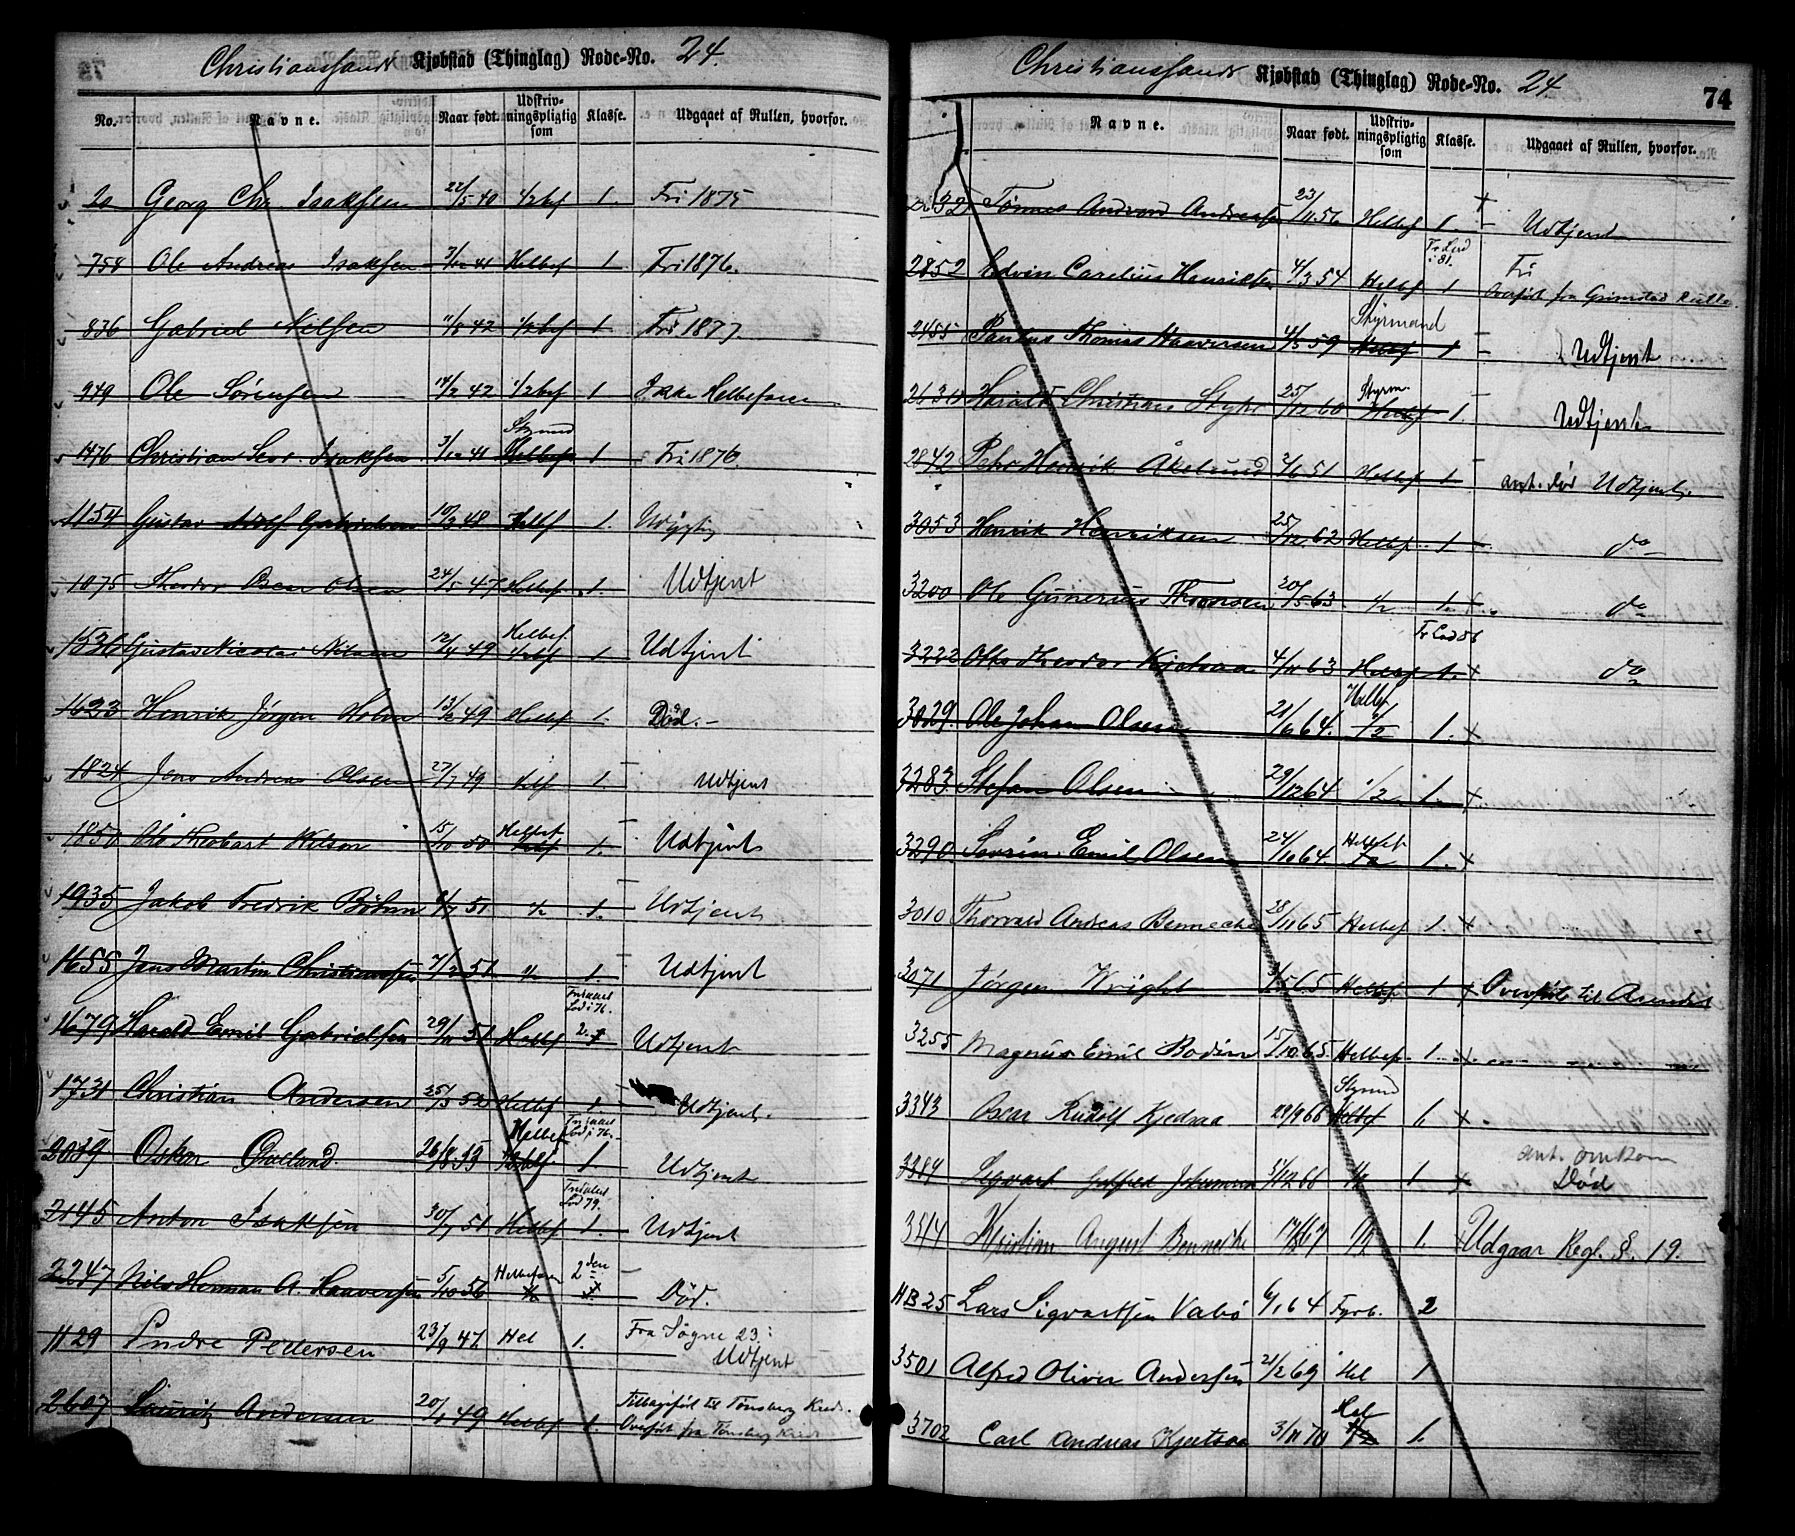 Christianssands Kjøbstad (Thinglag) Rode-No. 24.
No. Navne. Naar født. Udskriv-ningspligtig som Klasse. Udgaaet af Rullen, hvorfor.
20 Georg Chr. Isaksen 22/5 40 1/2 bef 1. Fri 1875
758 Ole Andreas Isaksen 41 Helbef 1. Fri 1876.
836 Gabriel Nilsen 11/8 42 1/2 bef 1 Fri 1877
949 Ole Sørensen 42 1/2 bef 1 Ikke Helbefaren
1476 Christian Isaksen 41 Helbef 1 Fri 1876.
1154 Gustav Adolf Gabrielsen 48 Helbef 1. Udygtig
1075 Theodor Olsen 24/5 47 Helbef 1. Udtjent
1536 Gustav Nicolai Nilsen 49 Helbef 1 Udtjent
1623 Henrik Jørgen Holm 49 Helbef 1. Død.
1824 Jens Andreas Olsen 27/7 49 1. Udtjent
1850 Theobart Nilson 15/10 50 Helbef 1. Udtjent
1935 Jakob Fredrik Böhm 51 1/2 1. Udtjent
1655 Jens Martin Christiansen 51 1/2 1. Udtjent
1679 Harald Emil Gabrielsen 29/11 51 Helbef 2. Udtjent
1731 Christian Andersen 25/3 52 Helbef 1 Udtjent.
2039 Oskar 26/8 53 Helbef 1 Udtjent
2145 Anton Isaksen 30/7 51 Helbef 1. Udtjent
2247 Nils Herman A. Haaversen 5/10 56 Helbefaren 2den Død.
1129 Endre Pedersen 23/9 47 Hel 1. Fra Søgne 23: Udtjent
2607 Lauritz Andersen 20/1 49 Helbef 1. Tilbageført til Tønsberg Kreds.
Overført fra Tønsberg Kreds
Christianssands Kjøbstad (Thinglag) Rode-No. 24
74
No. Navne. Naar født. Udskriv-ningspligtig som Klasse. Udgaaet af Rullen, hvorfor.
Tønnes Andreassen 23/11 56 Helbef 1. Udtjent
2852 Edvin Carelius Henriksen 4/3 54 Helbef 1 Fri
Overført fra Grimstad Rulle.
2455 Thomas Haaversen 4/5 59 Styrmand 1 Udtjent
Harald Christian 25/12 60 Styrm. 1. Udtjent
2842 Henrik Åkelund 51 Helbef 1 ant. død Udtjent.
3053 Henrik Henriksen 25/12 62 Helbef 1 do
3200 Ole Gunerius Thorsen 20/5 63 1/2 1. do
3222 Otto Theodor Kjetsaa 4/11 63 Helbef 1. do
3029. Ole Johan Olsen 21/6 64. Helbef 1/2 1.
3283. Stefan Olsen 29/12 64 1/2 1.
3290 Sevrin Emil Olsen 24/10 64. Helbef 1.
3010 Thorvald Andreas Bennecke 28/11 65 Helbef 1.
3071 Jørgen Wright 65 Helbef 1 Overført til Arendal
3255 Magnus Emil Bodin 15/10 65 Helbef 1.
3343 Oscar Rudolf Kjedsaa 29/9 66 Styrmd 1.
3384 Sigvart Johannesen 5/12 66 1/2 1 ant. omkom
Død
3514 Kristian August Bennecke 67 1/2 1. Udgaar Regl. §. 19.
HB 25 Lars Sigvartsen Vabø 6/1 64 Fyrb. 2
3501 Alfred Oliver Andersen 21/2 69 Hel 1
3702 Carl Andreas Kjetsaa 3/11 70 Hel 1.